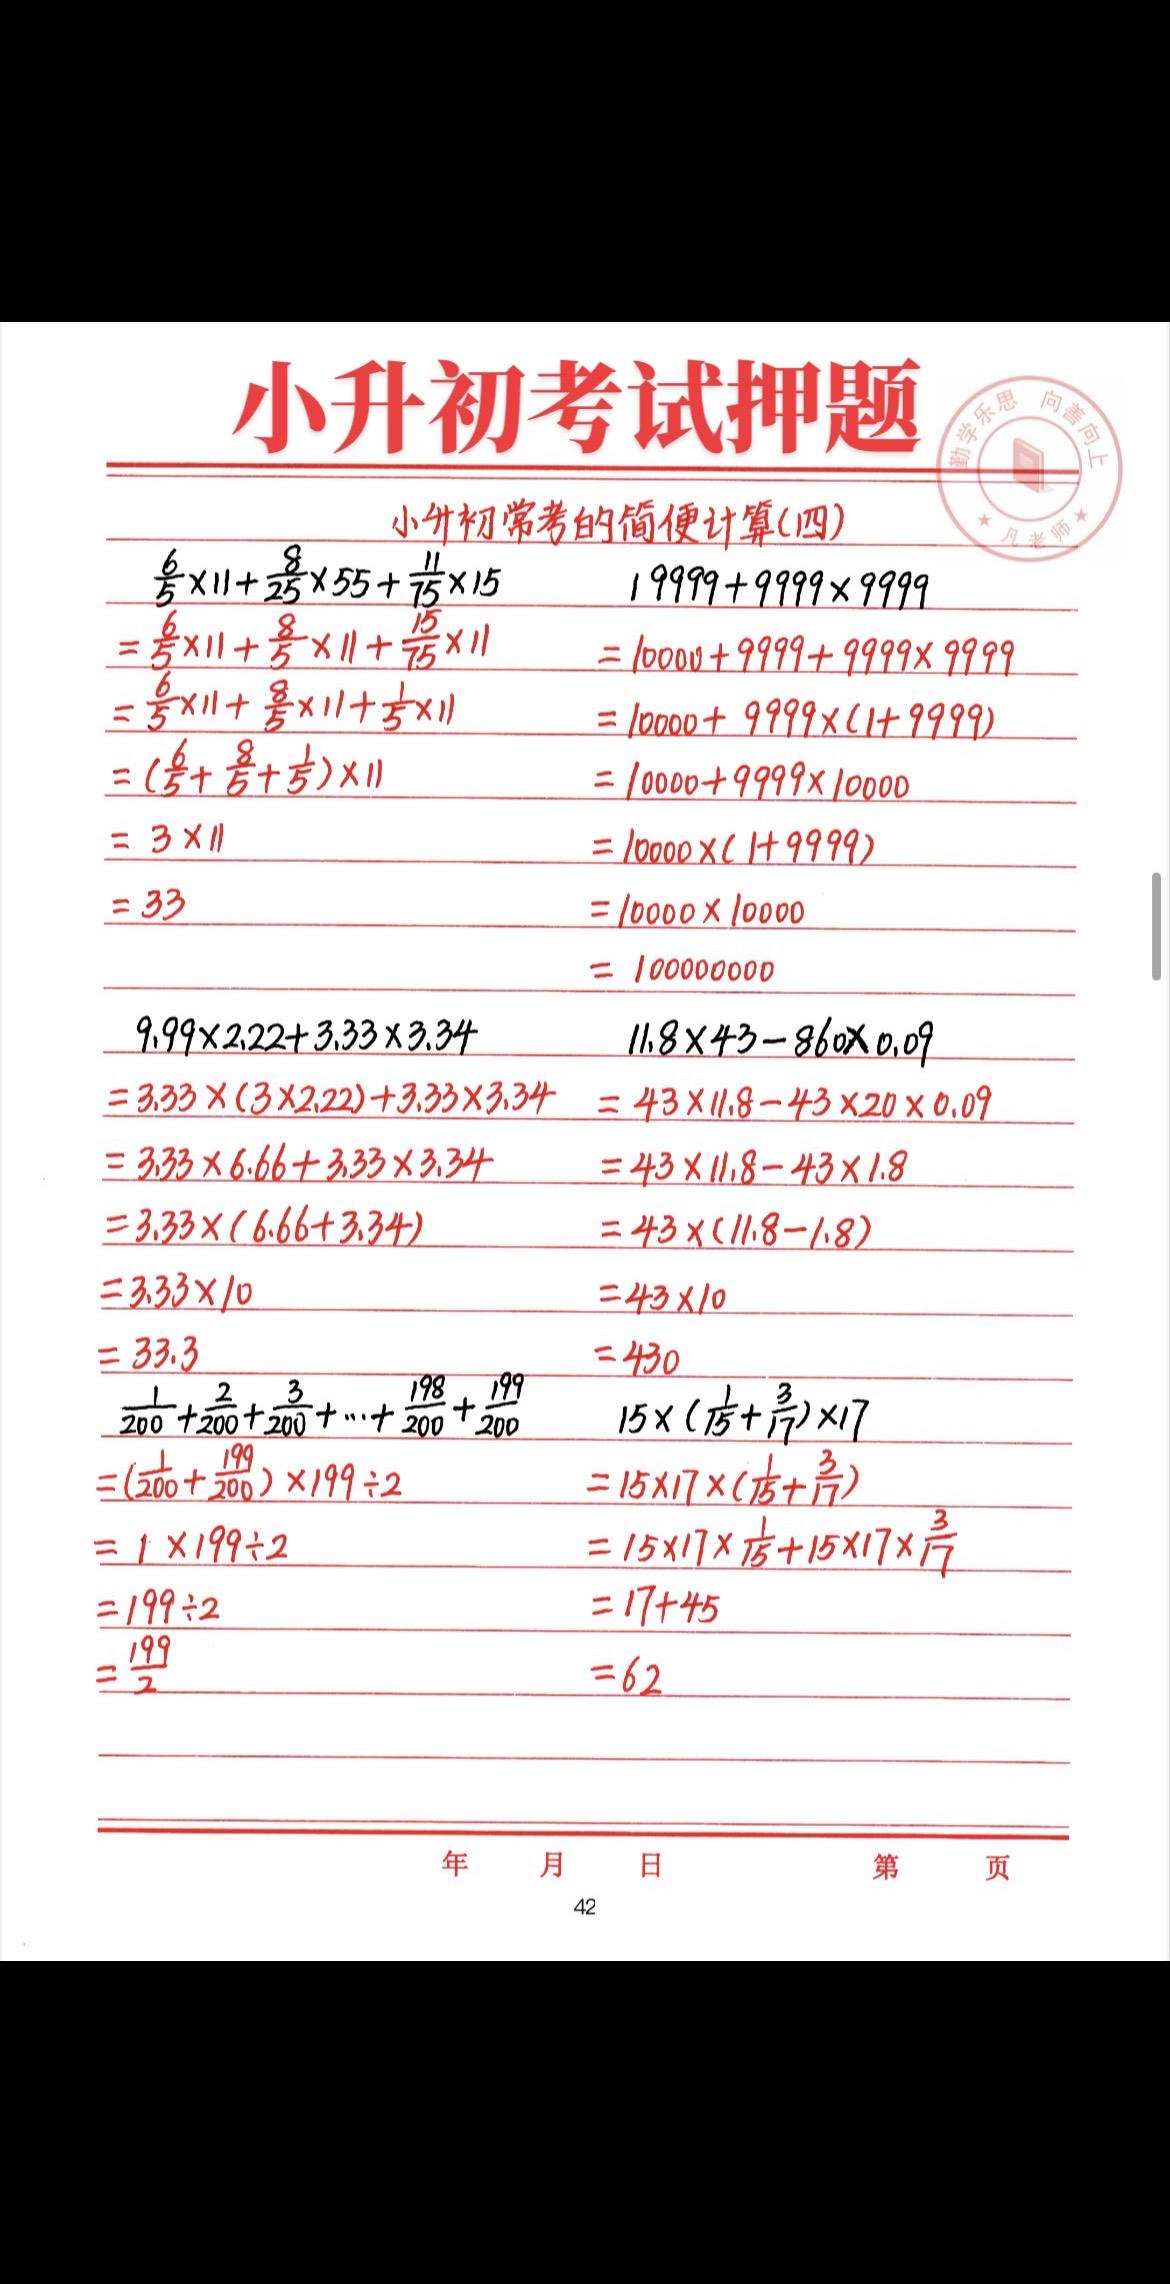 小升初考试押题
勤学乐思 向善向上
★ 凡老师 ★
小升初常考的简便计算(四)
6/5×11+8/25×55+11/75×15
=6/5×11+8/5×11+15/75×11
=6/5×11+8/5×11+1/5×11
=(6/5+8/5+1/5)×11
=3×11
=33
19999+9999×9999
=10000+9999+9999×9999
=10000+9999×(1+9999)
=10000+9999×10000
=10000×(1+9999)
=10000×10000
=100000000
9.99×2.22+3.33×3.34
=3.33×(3×2.22)+3.33×3.34
=3.33×6.66+3.33×3.34
=3.33×(6.66+3.34)
=3.33×10
=33.3
11.8×43-860×0.09
=43×11.8-43×20×0.09
=43×11.8-43×1.8
=43×(11.8-1.8)
=43×10
=430
1/200+2/200+3/200+…+198/200+199/200
=(1/200+199/200)×199÷2
=1×199÷2
=199÷2
=199/2
15×(1/15+3/17)×17
=15×17×(1/15+3/17)
=15×17×1/15+15×17×3/17
=17+45
=62
年 月 日 第 页
42